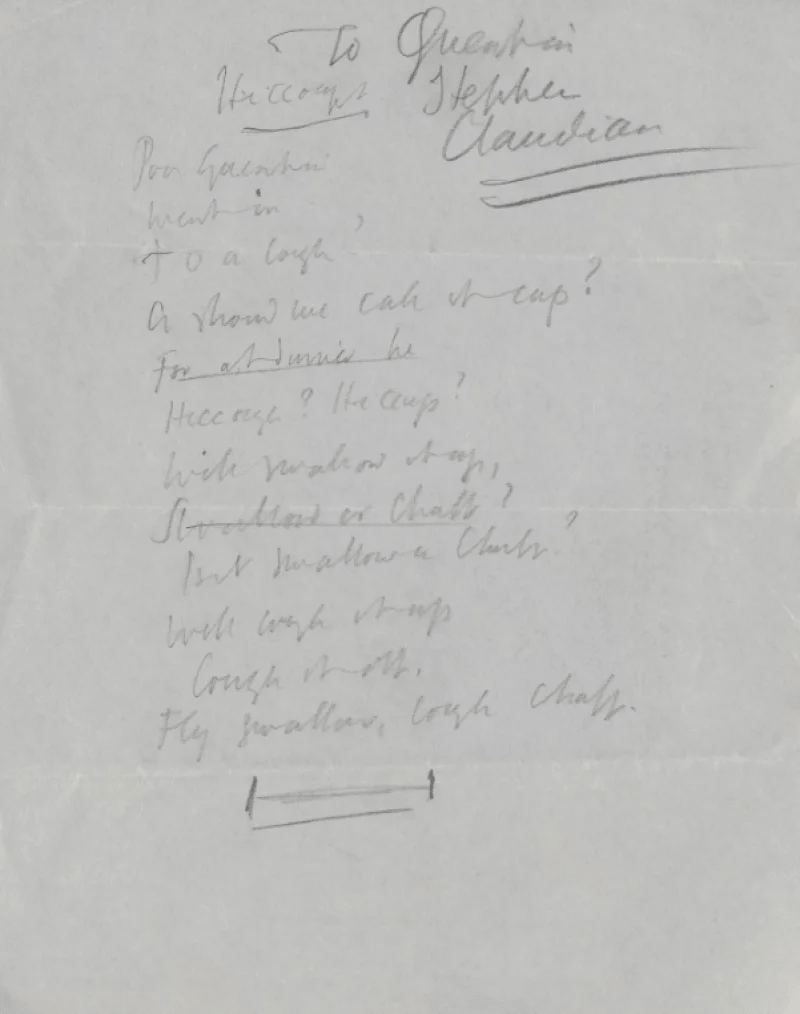 To Quentin
Hiccoups Stephen
Claudian
Poor Quentin
Went in
To a cough,
Or should we call it cup?
For at dinner he
Hiccough? Hiccup?
We'll swallow it up,
Swallow or Chaff?
But swallow a Chaff?
We'll cough it up
Cough it off.
Fly swallow, cough chaff.